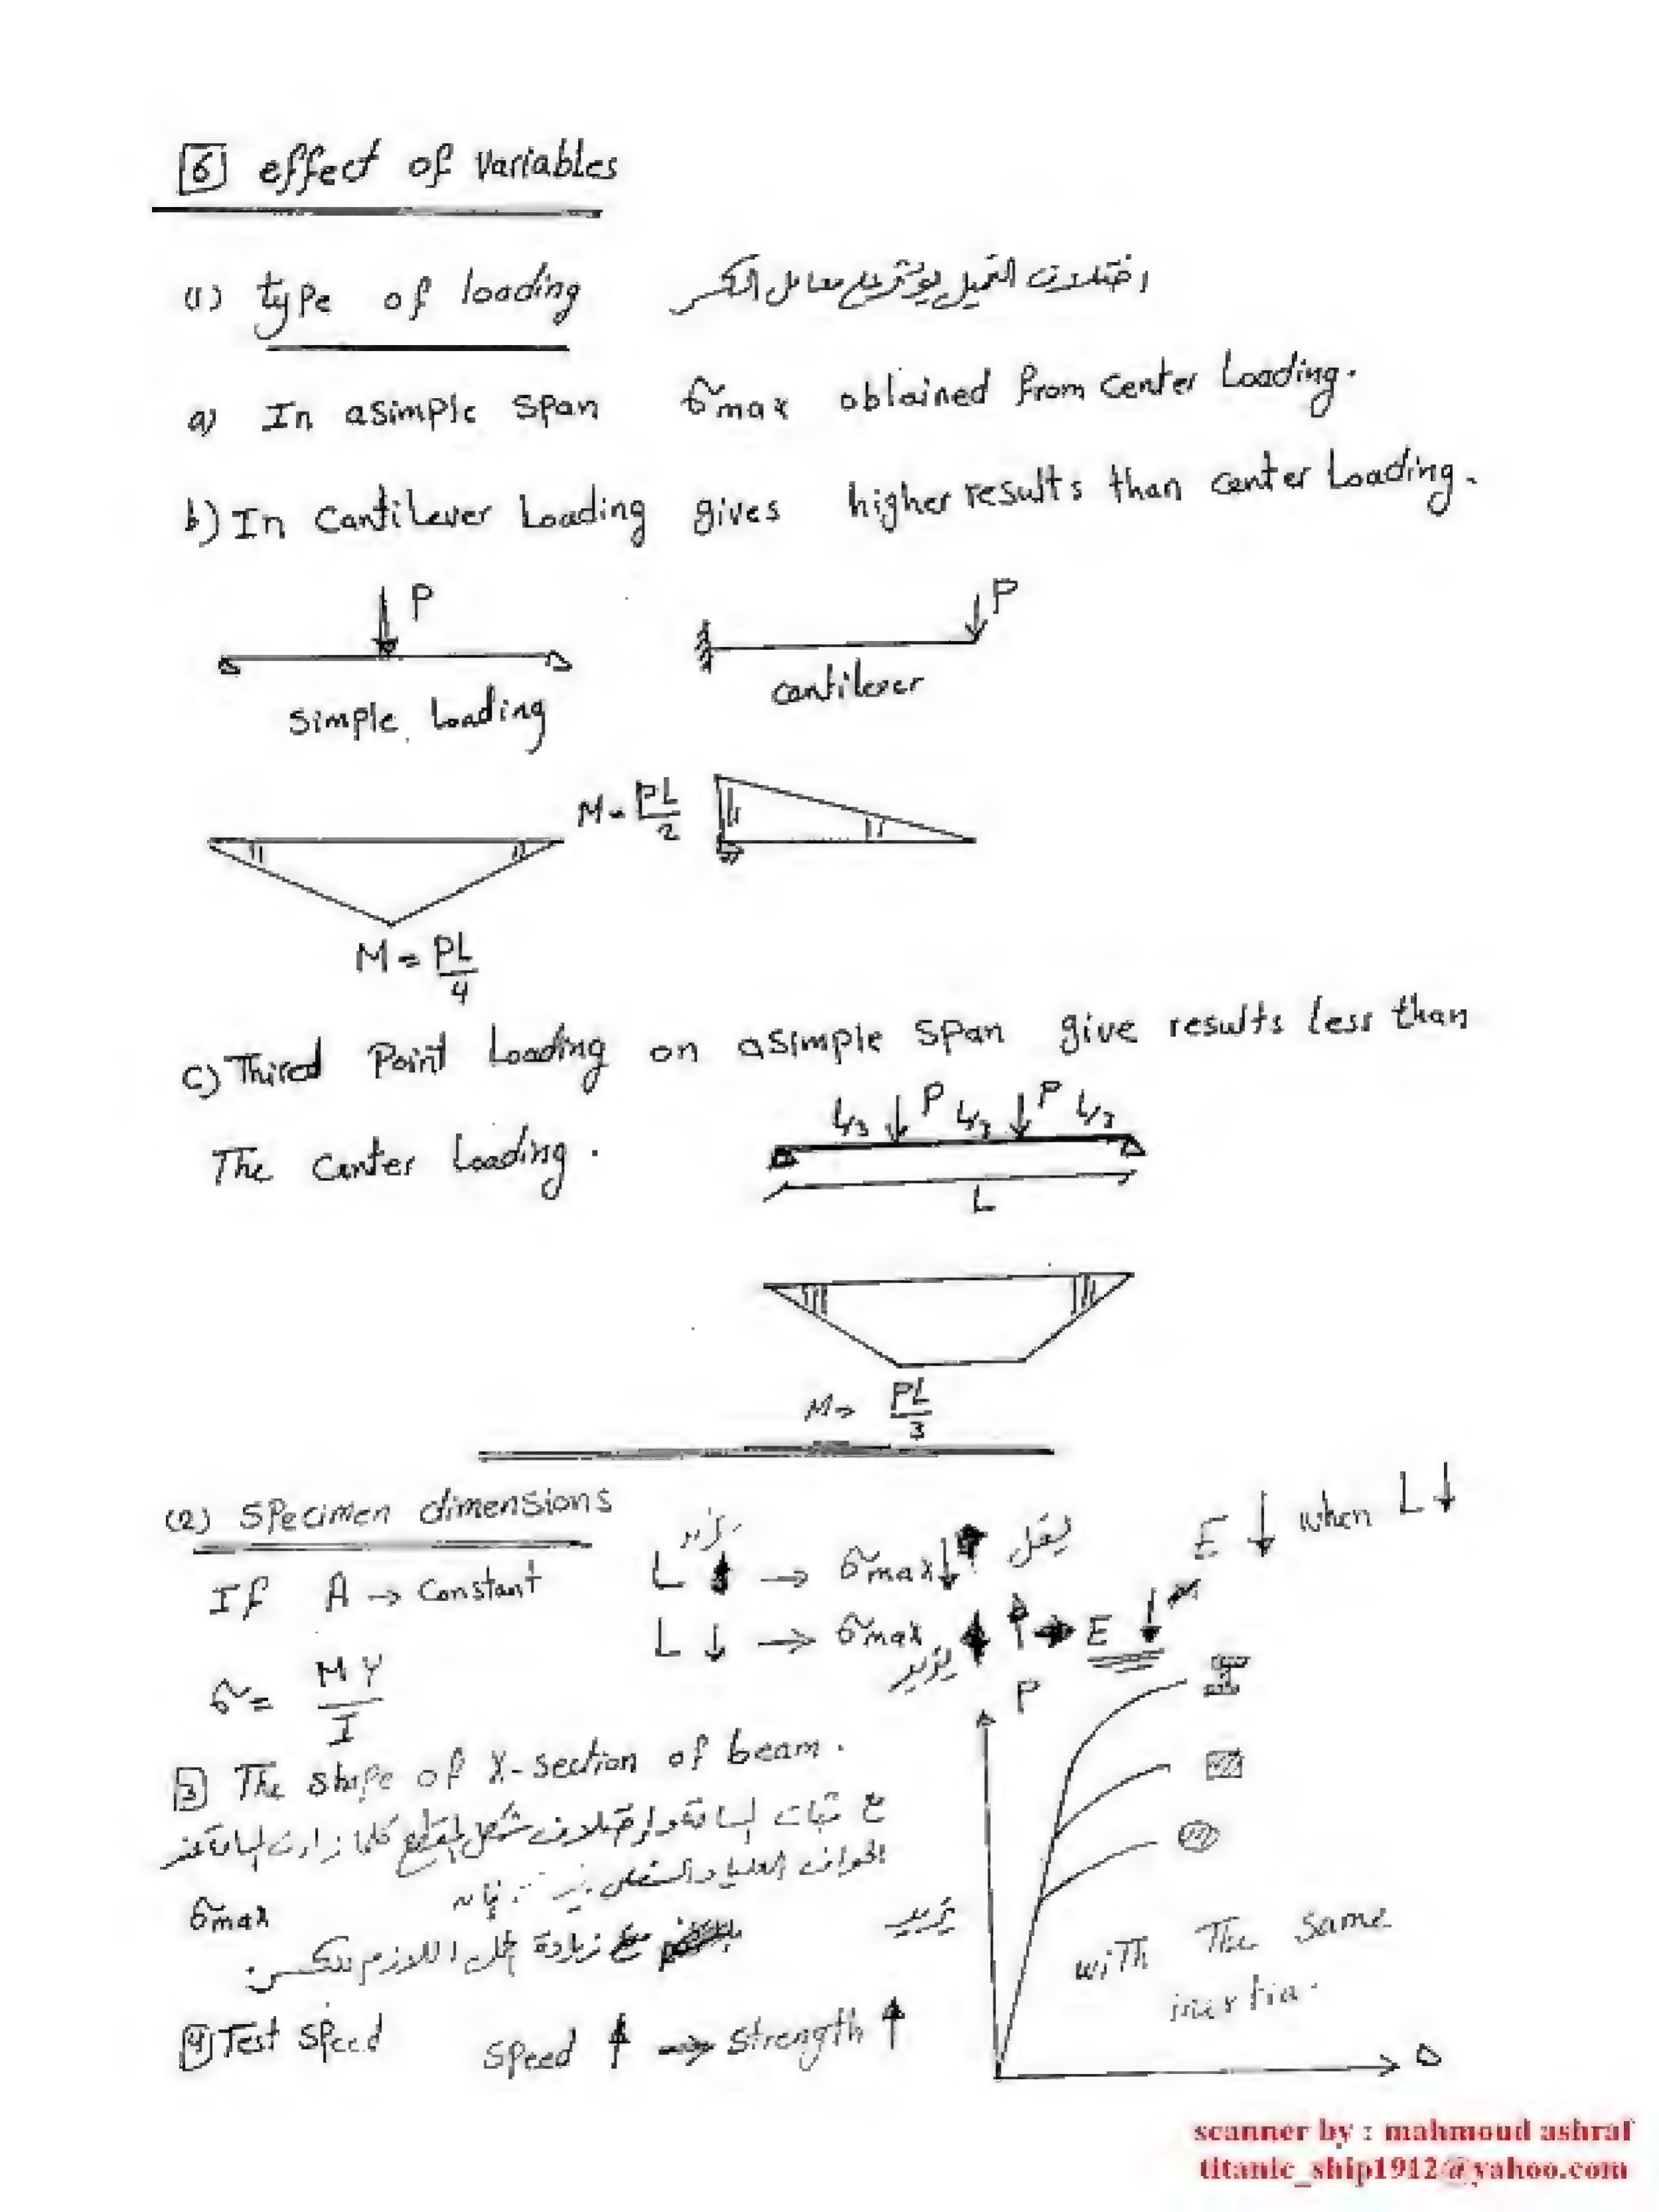 6 effect of variables
(1) type of loading اختلاف التحميل يؤثر على معامل الكسر
a) In asimple span σmax obtained from center Loading.
b) In Cantilever Loading gives higher results than center Loading.
P
P
simple Loading
cantilever
M = PL/2
M = PL/4
c) Thired Point Loading on asimple span give results less than
The center Loading.
L/3 P L/3 P L/3
L
M = PL/3
(2) Specimen dimensions
E ↓ when L ↓
If A → Constant
L ↑ → σmax ↓ يقل
L ↓ → σmax ↑ → E ↓
يزيد
σ = MY/I
P
3 The shape of X-section of beam.
مع ثبات المساحة واختلاف شكل المقطع كلما زادت المساحة عند
الحواف العليا والسفلى
σmax
تزيد
مع زيادة الحمل اللازم للكسر
with The same
inertia.
4 Test Speed Speed ↑ → Strength ↑
Δ
scanner by : mahmoud ashraf
titanic_ship1912@yahoo.com